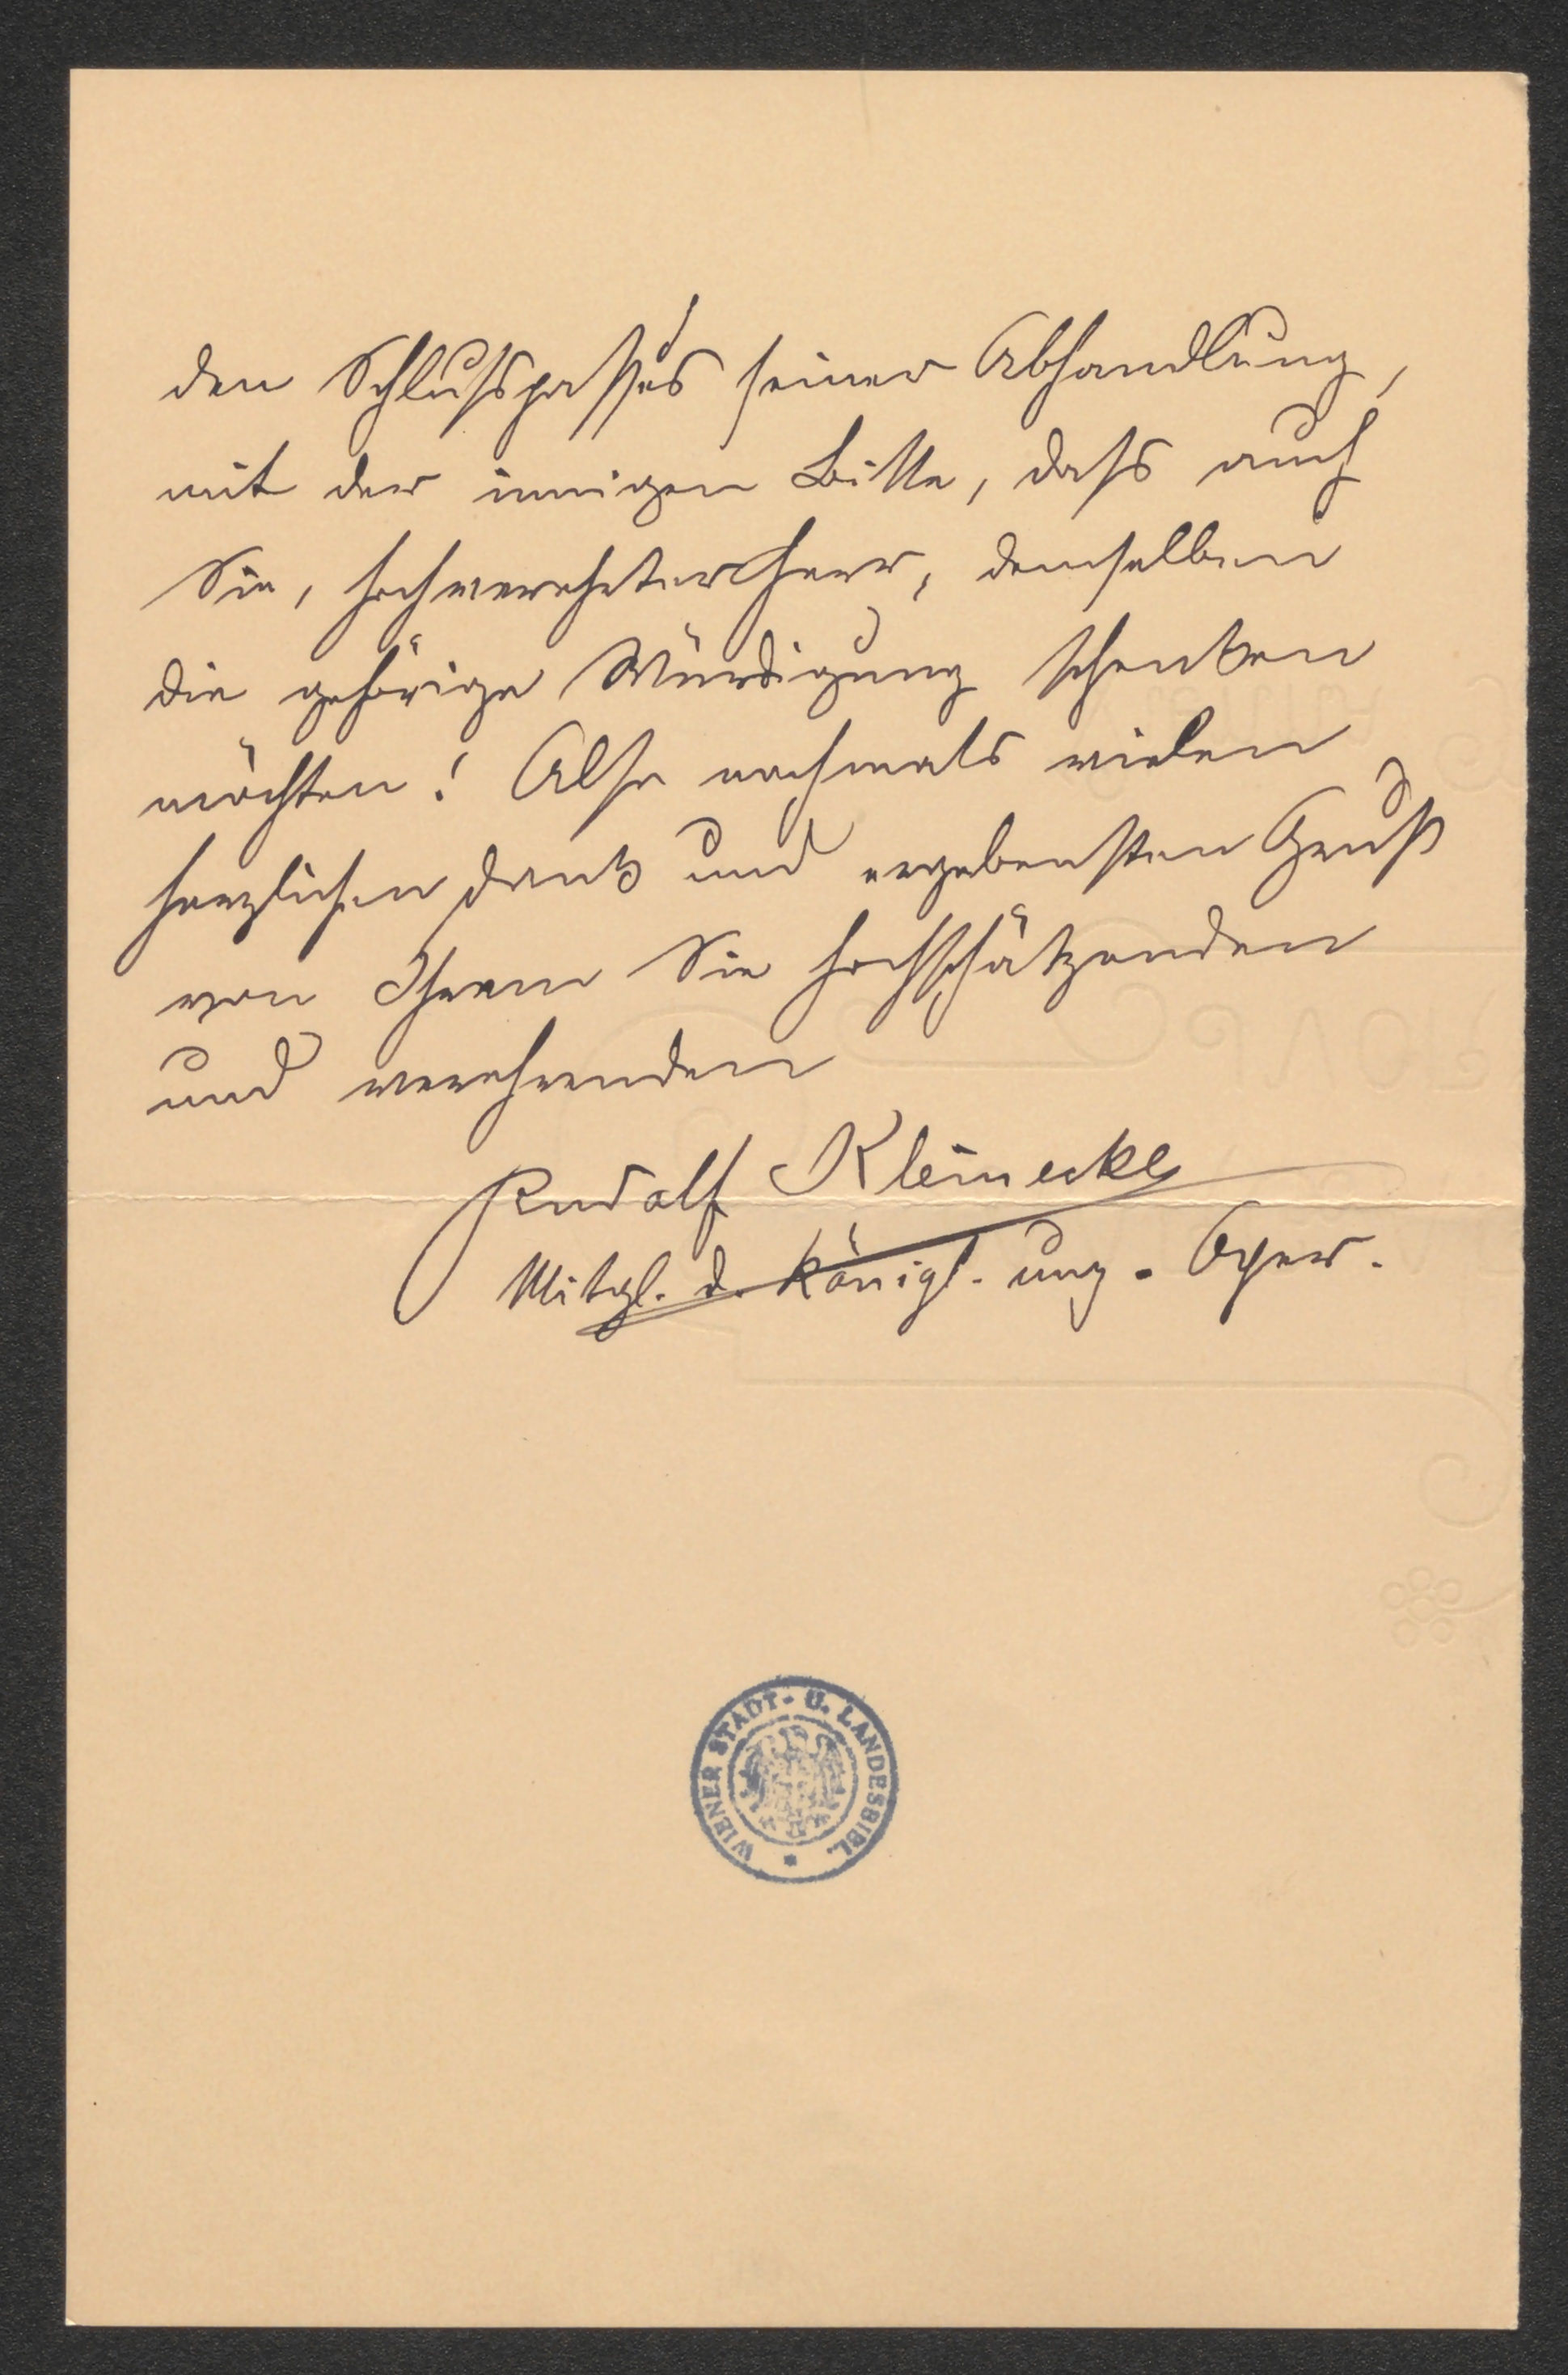 den Schlußspassus seiner Abhandlung,
mit der innigen Bitte, daß auch
Sie, hochverehrter Herr, demselben
die gehörige Würdigung schenken
möchten! Also nochmals vielen
herzlichen Dank und ergebensten Gruß
von Ihrem Sie hochschätzenden
und verehrenden
Rudolf Kleinecke
Mitgl. d. königl. ung. Oper.
WIENER STADT- U. LANDESBIBL.